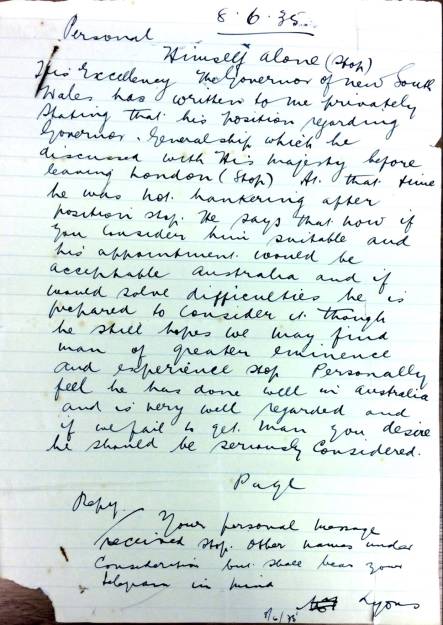 8.6.35
Personal
Himself alone (Stop)
His Excellency The Governor of New South
Wales has written to me privately
stating that his position regarding
Governor-Generalship which he
discussed with His Majesty before
leaving London (Stop) At that time
he was not hankering after
position stop. He says that now if
you consider him suitable and
his appointment would be
acceptable Australia and if
would solve difficulties he is
prepared to consider it though
he still hopes we may find
man of greater eminence
and experience stop Personally
feel he has done well in Australia
and is very well regarded and
if we fail to get man you desire
he should be seriously considered.
Page
Reply.
Your personal message
received stop. Other names under
consideration but shall bear your
telegram in mind
Lyons
8/6/35